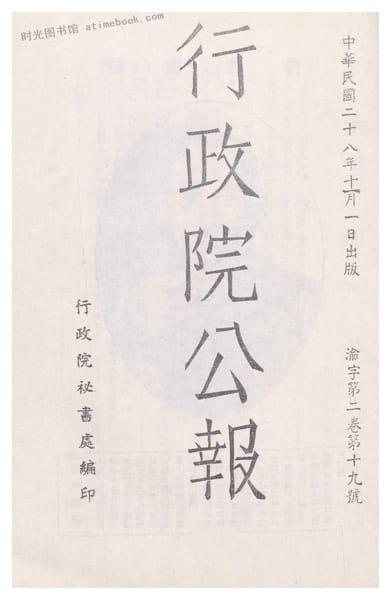 时光图书馆 atimebook.com
中華民國二十八年十一月一日出版
渝字第二卷第十九號
行政院公報
行政院祕書處編印